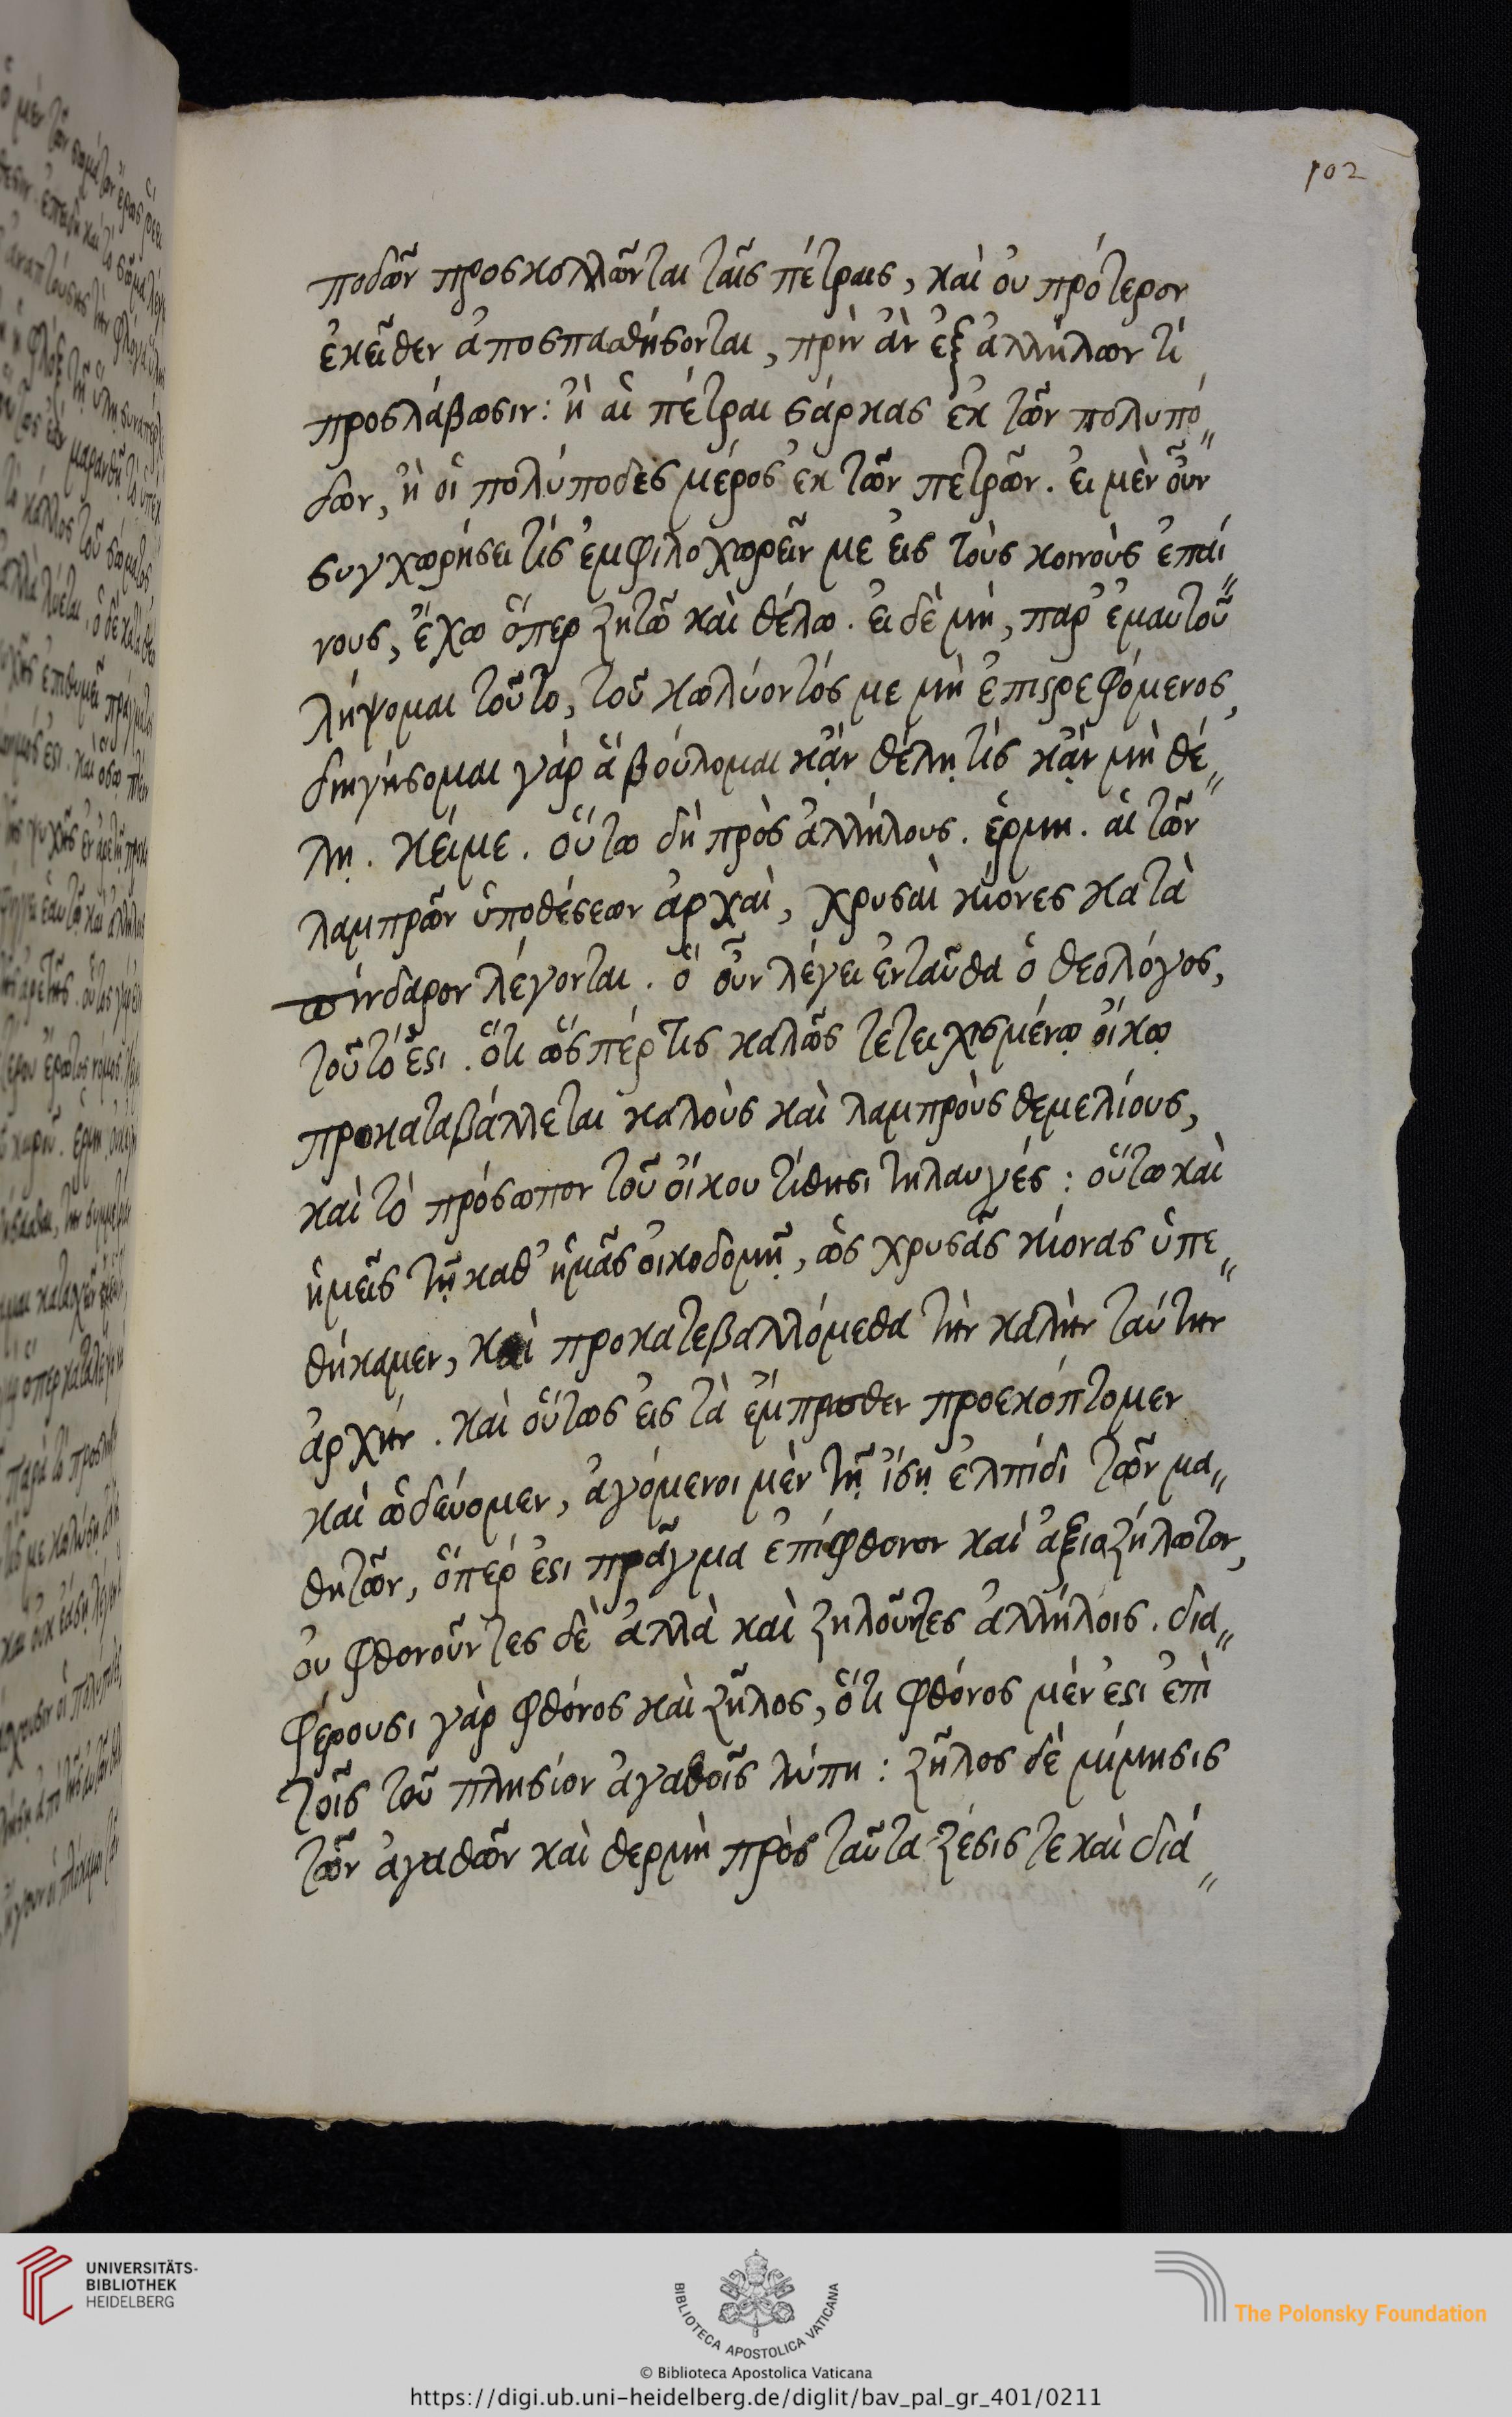 102
ποδῶν προσκολλῶνται ταῖς πέτραις, καὶ οὐ πρότερον
ἐκεῖθεν ἀποσπασθήσονται, πρὶν ἂν ἐξ ἀλλήλων τὶ
προσλάβωσιν: ἢ αἱ πέτραι σάρκας ἐκ τῶν πολυπό„
δων, ἢ οἱ πολύποδες μέρος ἐκ τῶν πετρῶν. εἰ μὲν οὖν
συγχωρήσει τίς ἐμφιλοχωρεῖν με εἰς τοὺς κοινοὺς ἐπαί„
νους, ἔχω ὅπερ ζητῶ καὶ θέλω. εἰ δὲ μὴ, παρ' ἐμαυτοῦ
λήψομαι τοῦτο, τοῦ κωλύοντός με μὴ ἐπιστρεφόμενος,
διηγήσομαι γὰρ ἃ βούλομαι κᾂν θέλῃ τίς κᾂν μὴ θέ„
λῃ. κείμε. οὕτω δὴ πρὸς ἀλλήλους. ἑρμη. αἱ τῶν
λαμπρῶν ὑποθέσεων ἀρχαὶ, χρυσαὶ κίονες κατὰ
πίνδαρον λέγονται. ὃ οὖν λέγει ἐνταῦθα ὁ θεολόγος,
τοῦτό ἐστι. ὅτι ὥσπέρ τις καλῶς τετειχισμένῳ οἴκῳ
προκαταβάλλεται καλοὺς καὶ λαμπροὺς θεμελίους,
καὶ τὸ πρόσωπον τοῦ οἴκου τίθησι τηλαυγές: οὕτω καὶ
ἡμεῖς τῇ καθ' ἡμᾶς οἰκοδομῇ, ὡς χρυσᾶς κίονας ὑπε„
θήκαμεν, καὶ προκατεβαλλόμεθα τὴν καλὴν ταύτην
ἀρχήν. καὶ οὕτως εἰς τὰ ἔμπροσθεν προεκόπτομεν
καὶ ὡδεύομεν, ἀγόμενοι μὲν τῇ ἴσῃ ἐλπίδι τῶν μα„
θητῶν, ὅπερ ἐστι πρᾶγμα ἐπίφθονον καὶ ἀξιοζήλωτον,
οὐ φθονοῦντες δὲ ἀλλὰ καὶ ζηλοῦντες ἀλλήλοις. δια„
φέρουσι γὰρ φθόνος καὶ ζῆλος, ὅτι φθόνος μέν ἐστι ἐπὶ
τοῖς τοῦ πλησίον ἀγαθοῖς λύπη: ζῆλος δὲ μίμησις
τῶν ἀγαθῶν καὶ θερμὴ πρὸς ταῦτα ζέσις τε καὶ διά„
UNIVERSITÄTS-
BIBLIOTHEK
HEIDELBERG
BIBLIOTECA APOSTOLICA VATICANA
The Polonsky Foundation
© Biblioteca Apostolica Vaticana
https://digi.ub.uni-heidelberg.de/diglit/bav_pal_gr_401/0211